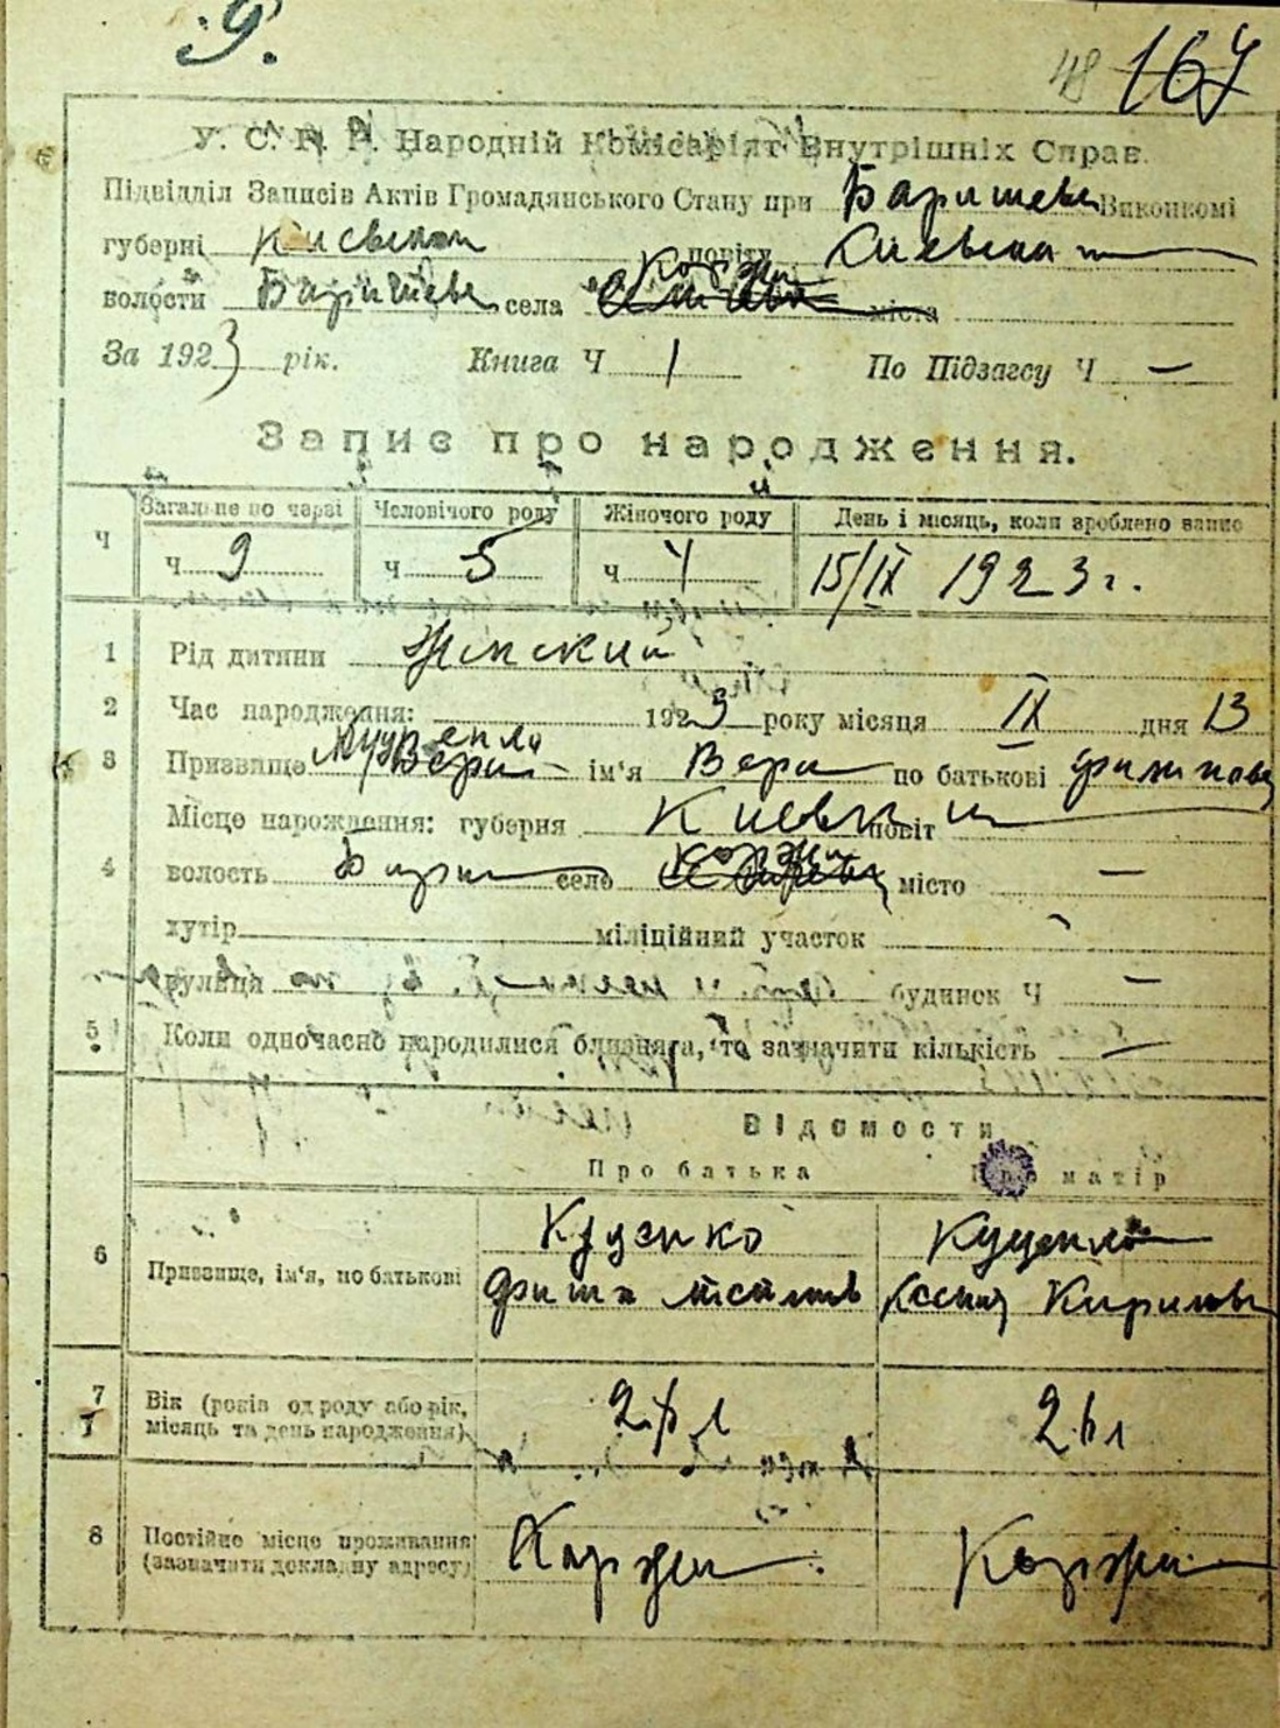 9.
48 167
У. С. Р. Р. Народній Комісаріят Внутрішніх Справ.
Підвідділ Записів Актів Громадянського Стану при Баришев Виконкомі
губерні Киевской повіту Киевскаго
волости Баришев села Коржи міста
За 1923 рік. Книга Ч 1 По Підзагсу Ч —
Запис про народження.
Ч Загальне по черзі Человічого роду Жіночого роду День і місяць, коли зроблено запис
ч 9 ч 5 ч 4 15/IX 1923 г.
1 Рід дитяни Женский
2 Час народження: 1923 року місяця IX дня 13
3 Призвище ім'я Вера по батькові Филипова
Місце нарождення: губерня Киевск повіт
4 волость Бариш село Коржи місто —
хутір міліційний участок
вулиця будинок Ч —
5 Коли одночасно народилися близнята, то зазначити кількість —
Відомости
Про батька Про матір
6 Призвище, ім'я, по батькові Куценко Куценко
Кирилов
7 Вік (років од роду або рік, місяць та день народження) 26 л
8 Постійне місце проживання (зазначити докладну адресу) Коржи Коржи